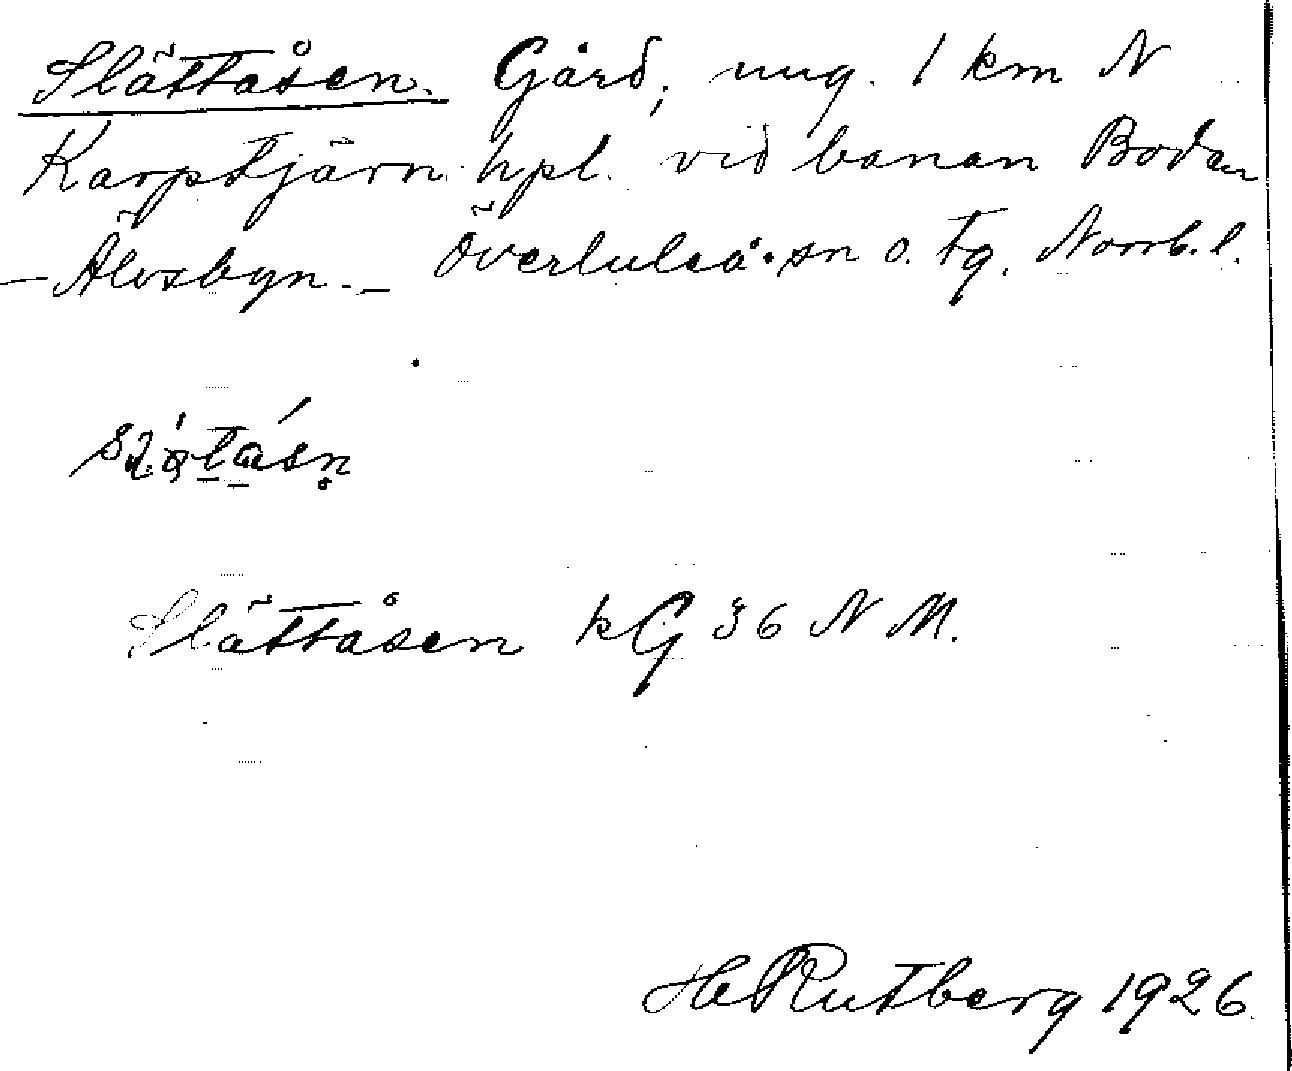 Slättåsen. Gård, ung. 1 km N
Karptjärn hpl. vid banan Boden
– Älvsbyn. – Överluleå sn o. tg. Norrb. l.
Slättåsen kG 36 N M.
H Rutberg 1926